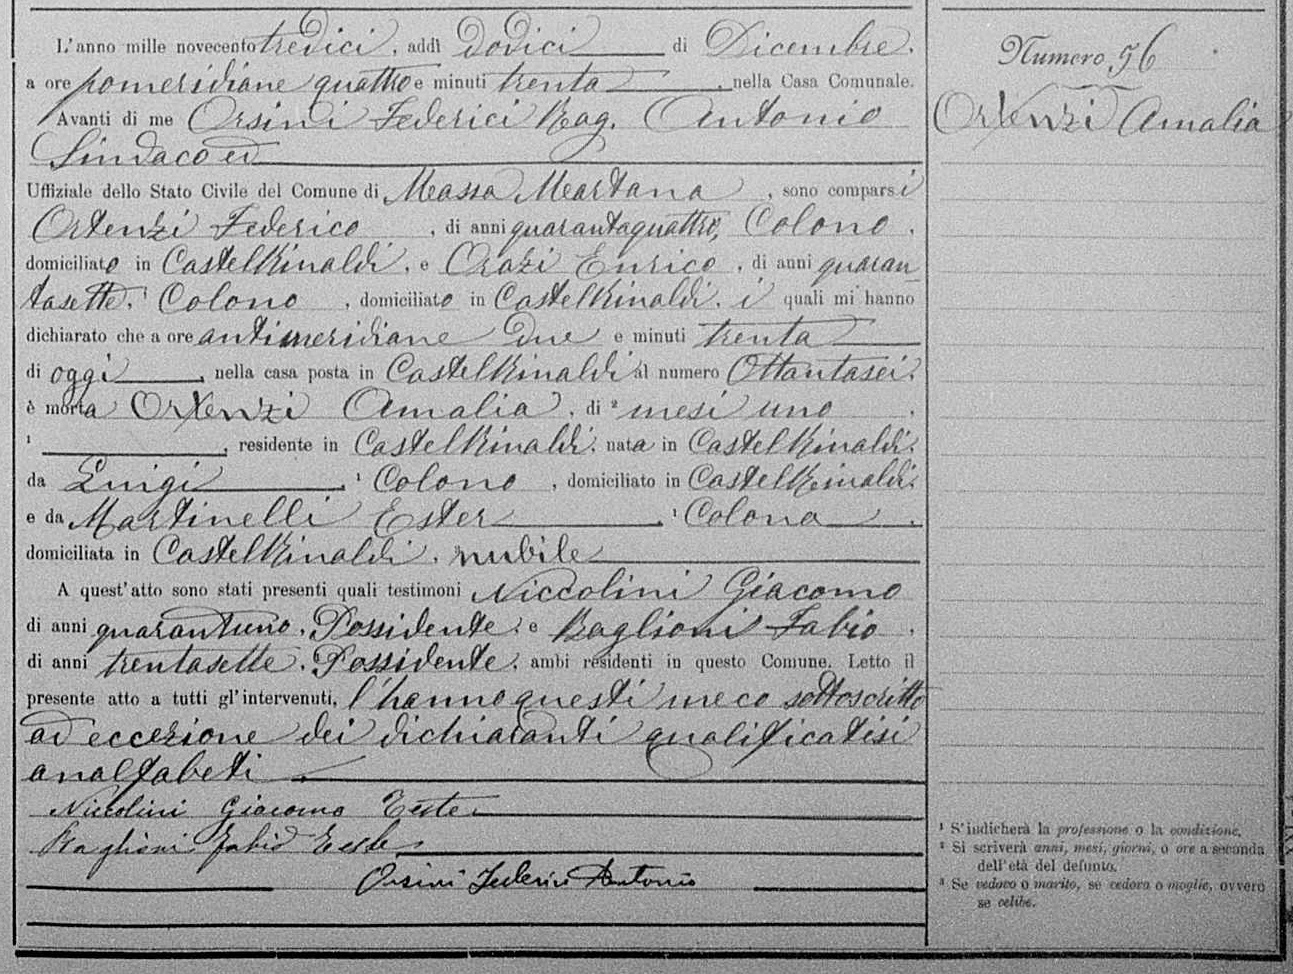 L'anno mille novecento tredici, addì dodici di Dicembre,
a ore pomeridiane quattro e minuti trenta, nella Casa Comunale.
Avanti di me Orsini Federici Rag. Antonio
Sindaco ed
Uffiziale dello Stato Civile del Comune di Massa Martana, sono comparsi
Ortenzi Federico, di anni quarantaquattro, Colono,
domiciliato in CastelRinaldi, e Orazi Enrico, di anni quaran
tasette, ¹ Colono, domiciliato in CastelRinaldi, i quali mi hanno
dichiarato che a ore antimeridiane due e minuti trenta
di oggi, nella casa posta in CastelRinaldi al numero Ottantasei,
è morta Ortenzi Amalia, di ² mesi uno,
¹ , residente in CastelRinaldi, nata in CastelRinaldi,
da Luigi, ¹ Colono, domiciliato in CastelRinaldi,
e da Martinelli Ester, ¹ Colona,
domiciliata in CastelRinaldi, nubile
A quest'atto sono stati presenti quali testimoni Niccolini Giacomo
di anni quarantuno, Possidente, e Baglioni Fabio,
di anni trentasette, Possidente, ambi residenti in questo Comune. Letto il
presente atto a tutti gl'intervenuti, l'hanno questi meco sottoscritto
ad eccezione dei dichiaranti qualificatisi
analfabeti
Niccolini Giacomo Teste
Baglioni Fabio Teste
Orsini Federici Antonio
Numero 56
Ortenzi Amalia
¹ S'indicherà la professione o la condizione.
² Si scriverà anni, mesi, giorni, o ore a seconda
dell'età del defunto.
³ Se vedovo o marito, se vedova o moglie, ovvero
se celibe.